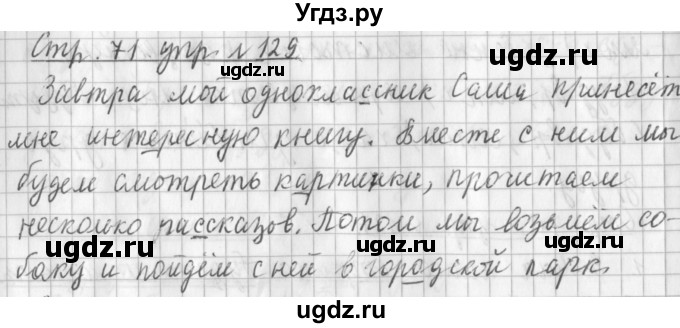 Угдз.ру
Стр. 71 упр № 129
gdz.ru
gdz.ru
Завтра мой одноклассник Саша принесёт
gdz.ru
мне интересную книгу. Вместе с ним мы
будем смотреть картинки, прочитаем
несколько рассказов. Потом мы возьмём со-
gdz.ru
gdz.ru
баку и пойдём с ней в городской парк.
gdz.ru